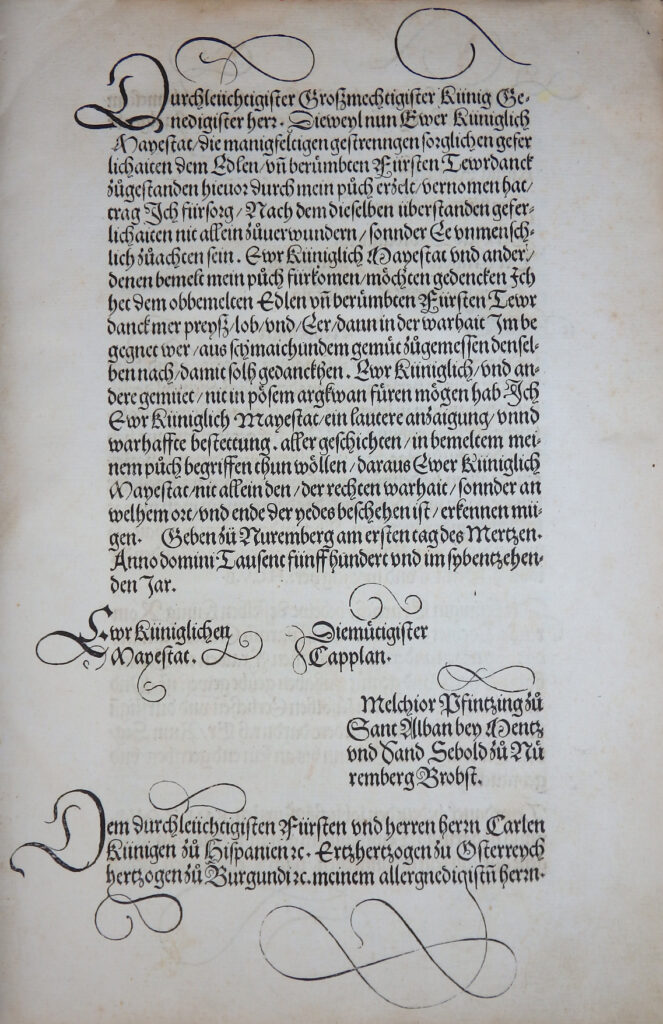 Durchleüchtigister Großmechtigister Künig Ge-
nedigister herr. Dieweyl nun Ewer Küniglich
Mayestat/die manigfeltigen gestrenngen sorglichen gefer
lichaiten dem Edlen/vñ berümbten Fürsten Tewrdanck
zůgestanden hieuor durch mein půch erzelt/vernomen hat/
trag Ich fürsorg/Nach dem dieselben überstanden gefer-
lichaiten nit allein zůuerwundern/sonnder Ee vnmensch-
lich zůachten sein. Ewr Küniglich Mayestat vnd ander/
denen bemelt mein půch fürkomen/möchten gedencken Ich
het dem obbemelten Edlen vñ berümbten Fürsten Tewr
danck mer preyß/lob/vnd/Eer/dann in der warhait Im be
gegnet wer/aus schmaichundem gemüt zůgemessen densel-
ben nach/damit solh gedanckhen. Ewr Küniglich/vnd an-
dere gemüet/nit in pösem argkwan füren mögen hab Ich
Ewr Küniglich Mayestat/ein lautere anzaigung/vnnd
warhaffte bestettung. aller geschichten/in bemeltem mei-
nem půch begriffen thun wöllen/daraus Ewer Küniglich
Mayestat/nit allein den/der rechten warhait/sonnder an
welhem ort/vnd ende der yedes beschehen ist/erkennen mü-
gen. Geben zů Nuremberg am ersten tag des Mertzen.
Anno domini Tausent fünff hundert vnd im sybentzehen-
den Jar.
Ewr Küniglichen Diemütigister
Mayestat. Capplan.
Melchior Pfintzing zů
Sant Alban bey Mentz
vnd Sand Sebold zů Nü
remberg Brobst.
Dem durchleüchtigisten Fürsten vnd herren herrn Carlen
Künigen zů Hispanien ꝛc. Ertzhertzogen zů Osterreych
hertzogen zů Burgundi ꝛc. meinem allergnedigistñ herrn.